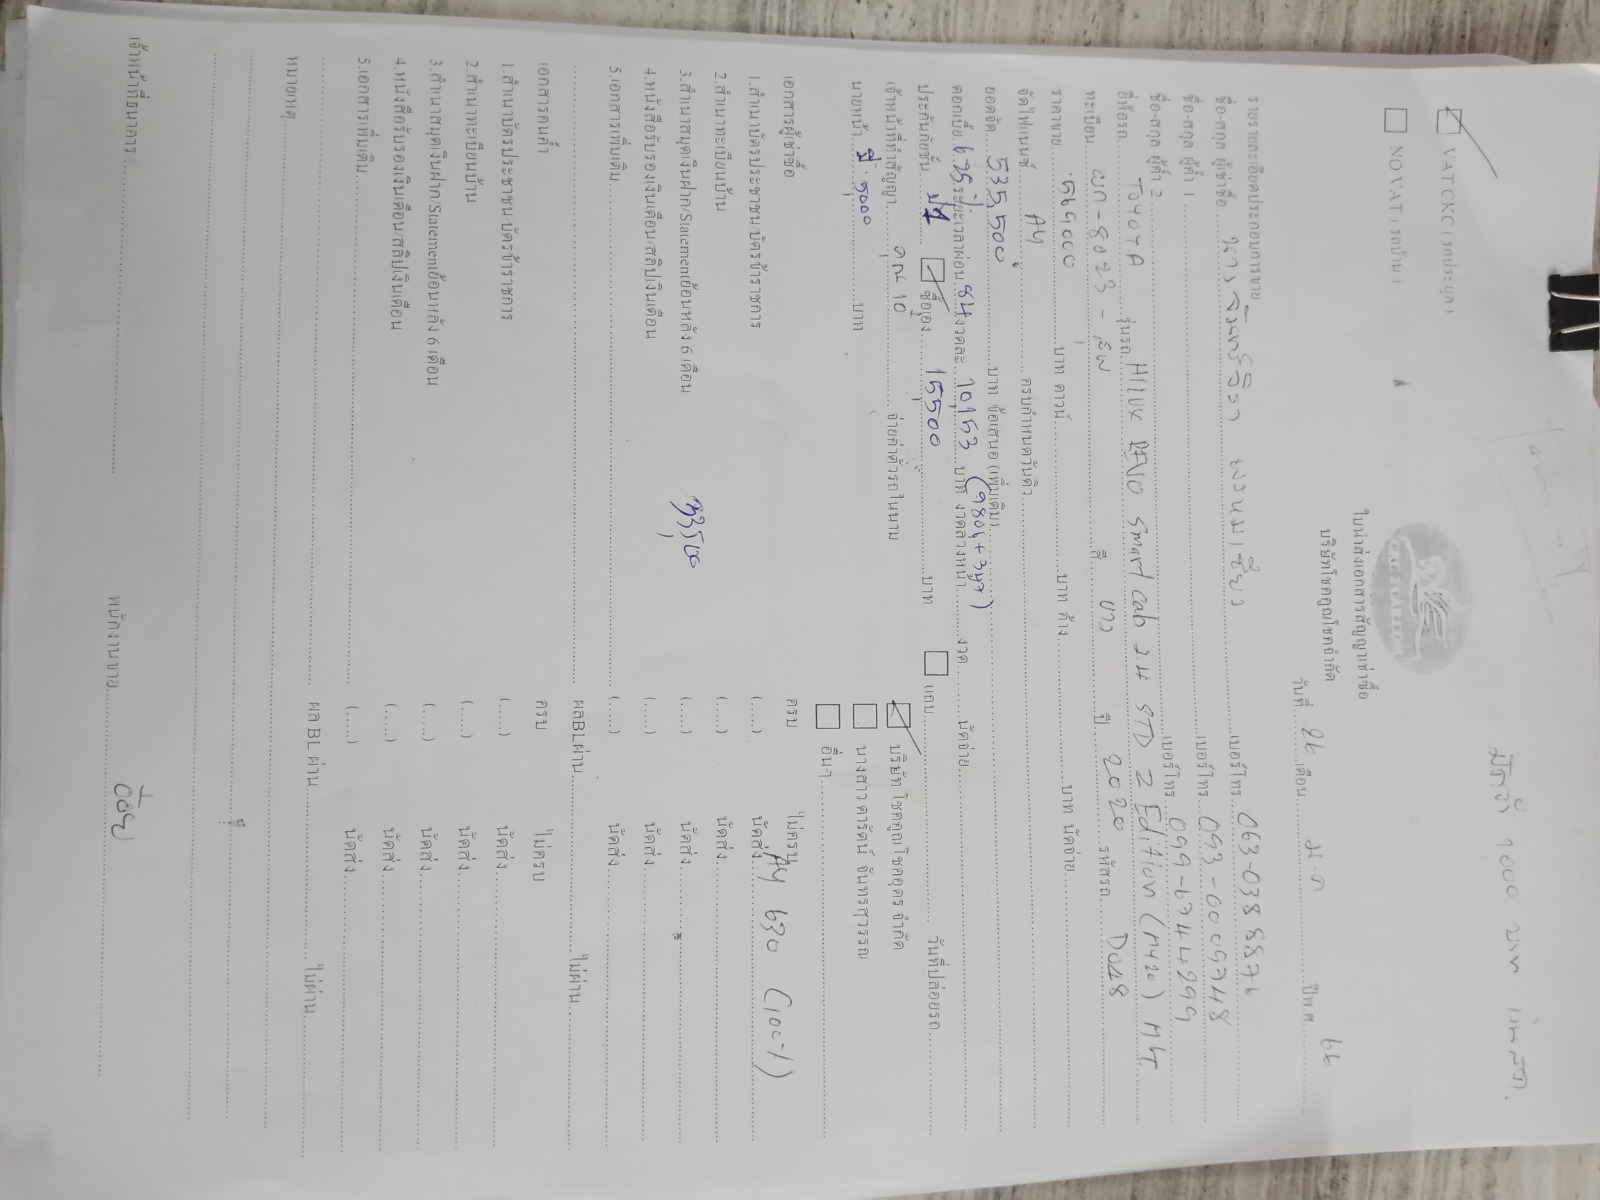 มัดจำ 1,000 บาท เงินสด.
ใบนำส่งเอกสารสัญญาเช่าซื้อ
บริษัทโชคคูณโชคจำกัด
VAT CKC ( รถประมูล )
NO VAT ( รถบ้าน )
วันที่ 26 เดือน ม.ค ปี พ.ศ 66
รายรายละเอียดประกอบการขาย
ชื่อ-สกุล ผู้เช่าซื้อ เบอร์โทร 063-038 8876
ชื่อ-สกุล ผู้ค้ำ 1 เบอร์โทร 093-0009748
ชื่อ-สกุล ผู้ค้ำ 2 เบอร์โทร 099-6744999
ยี่ห้อรถ TOYOTA รุ่นรถ HILUX REVO Smart Cab 2.4 STD Z Edition (MY20) MT
ทะเบียน สี ขาว ปี 2020 รหัสรถ D048
ราคาขาย บาท ดาวน์ บาท ค้าง บาท นัดจ่าย
จัดไฟแนนซ์ AY ครบกำหนดวันคิว
ยอดจัด 535,500 บาท ข้อเสนอ (เพิ่มเติม)
ดอกเบี้ย ระยะเวลาผ่อน 84 งวดละ 10,153 บาท งวดล่วงหน้า งวด นัดจ่าย
(9804+349)
ประกันภัยชั้น ป1 ซื้อเอง 15,500 บาท แถม วันที่ปล่อยรถ
เจ้าหน้าที่ทำสัญญา จ่ายค่าตัวรถในนาม บริษัท โชคคูณโชคอุดร จำกัด
นายหน้า มี 5,000 บาท นางสาว คารัตน์ จันทรสุวรรณ
อื่นๆ
เอกสารผู้เช่าซื้อ ครบ ไม่ครบ
1.สำเนาบัตรประชาชน/บัตรข้าราชการ (....) นัดส่ง AY 630
2.สำเนาทะเบียนบ้าน (....) นัดส่ง
3.สำเนาสมุดเงินฝาก/Statementย้อนหลัง 6 เดือน (....) นัดส่ง
4.หนังสือรับรองเงินเดือน/สลิปเงินเดือน (....) นัดส่ง
5.เอกสารเพิ่มเติม ( ) นัดส่ง
ผลBLผ่าน ไม่ผ่าน
เอกสารคนค้ำ ครบ ไม่ครบ
1.สำเนาบัตรประชาชน/บัตรข้าราชการ (....) นัดส่ง
2.สำเนาทะเบียนบ้าน (....) นัดส่ง
3.สำเนาสมุดเงินฝาก/Statementย้อนหลัง 6 เดือน (....) นัดส่ง
4.หนังสือรับรองเงินเดือน/สลิปเงินเดือน (....) นัดส่ง
5.เอกสารเพิ่มเติม (....) นัดส่ง
ผล BL ผ่าน ไม่ผ่าน
หมายเหตุ
เจ้าหน้าที่ธนาคาร พนักงานขาย